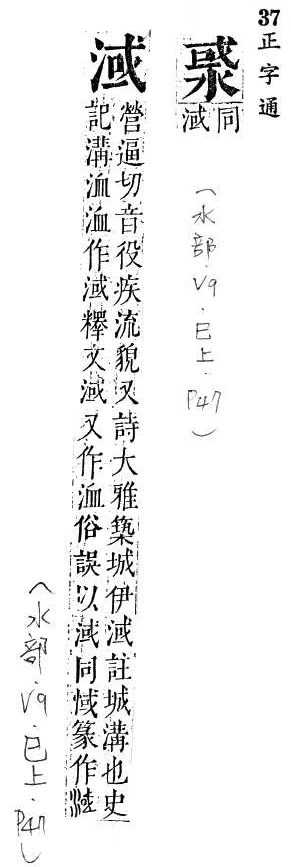 37正字通
㦽
同淢
(水部.V9.巳上.P47)
淢
營逼切音役疾流貌又詩大雅築城伊淢註城溝也史
記溝洫洫作淢釋文淢又作洫俗誤以淢同惐篆作
(水部.V9.巳上.P47)